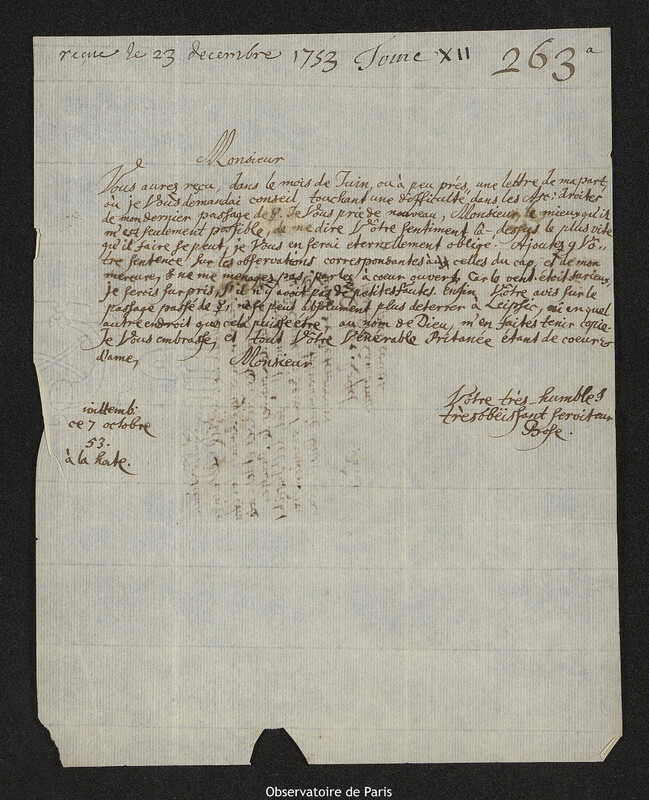 recue le 23 decembre 1753 Tome XII 263 a
Monsieur
Vous aures reçu, dans le mois de Juin, ou à peu prés, une lettre de ma part,
où je Vous demandai conseil, touchant une difficulté dans les Asc: droites
de mon dernier passage de ☿. Je Vous prie de nouveau, Monsieur, le mieux qu'il
m'est seulement possible, de me dire Vôtre sentiment là-dessus le plus vite
qu'il faire se peut, je Vous en serai eternellement obligé. Ajoutes y Vô-
tre sentence sur les observations correspondantes à celles du cap, et de mon
mercure, & ne me menages pas, parles à coeur ouvert. Car le vent étoit furieux,
je serois surpris, s'il n'y avoit pas de petites fautes. Enfin Vôtre avis sur le
passage passé de ☿, ne se peut absolument plus deterrer à Leipsic, ni en quel
autre endroit que cela puisse être, au nom de Dieu, m'en faites tenir copie
Je Vous embrasse, et tout Vôtre Venerable Pritanée étans de coeur &
d'ame,
Monsieur
Vôtre très humble &
très obëissant serviteur
Bose.
wittemb:
ce 7 octobre
53.
à la hate.
Observatoire de Paris